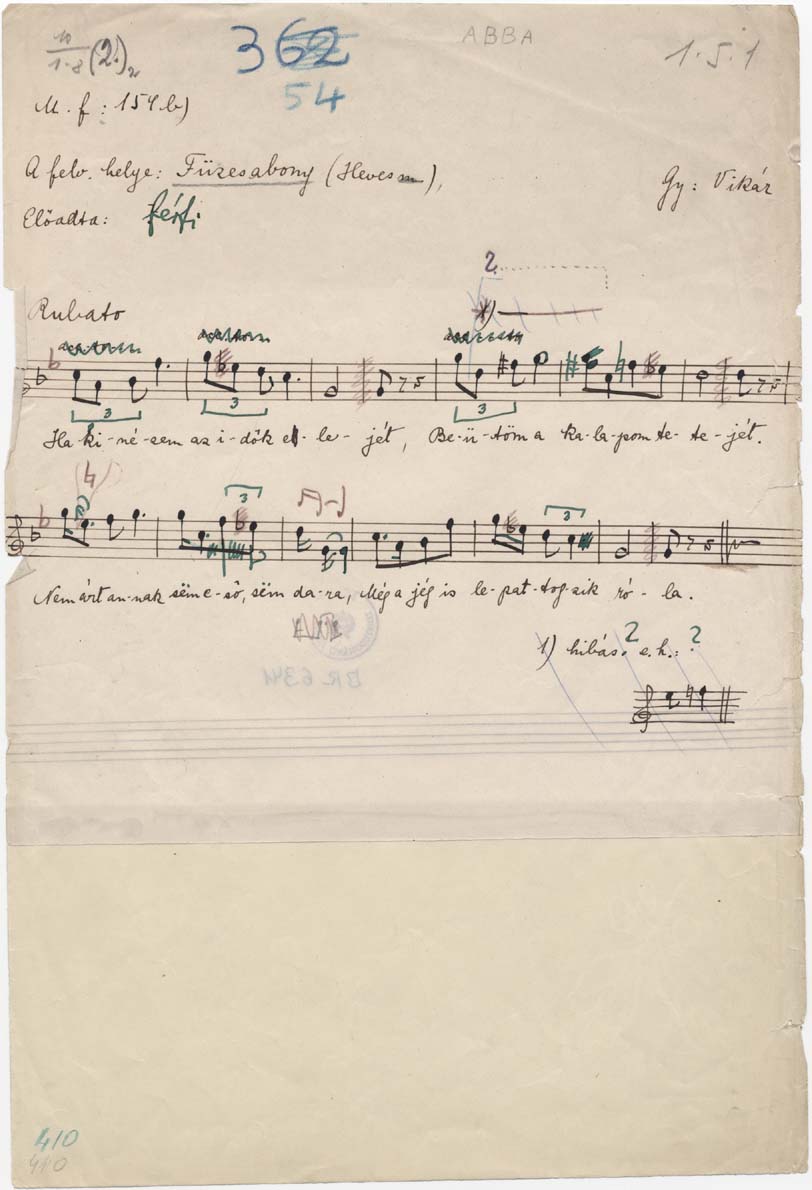 10
1·8 (2.)
362
54
ABBA
1.5.1
M. f: 154 b)
A felv. helye: Füzesabony (Heves m),
Gy: Vikár
Előadta: férfi
2
Rubato
3 3 3
Ha ki-né-zem az i-dők el-le-jét, Be-ü-töm a ka-la-pom te-te-jét.
4
3 3
Nem árt an-nak sëm e-ső, sëm da-ra, Még a jég is le-pat-tog-zik ró-la.
BR 6341
1) hibás? e.h.: ?
410
410